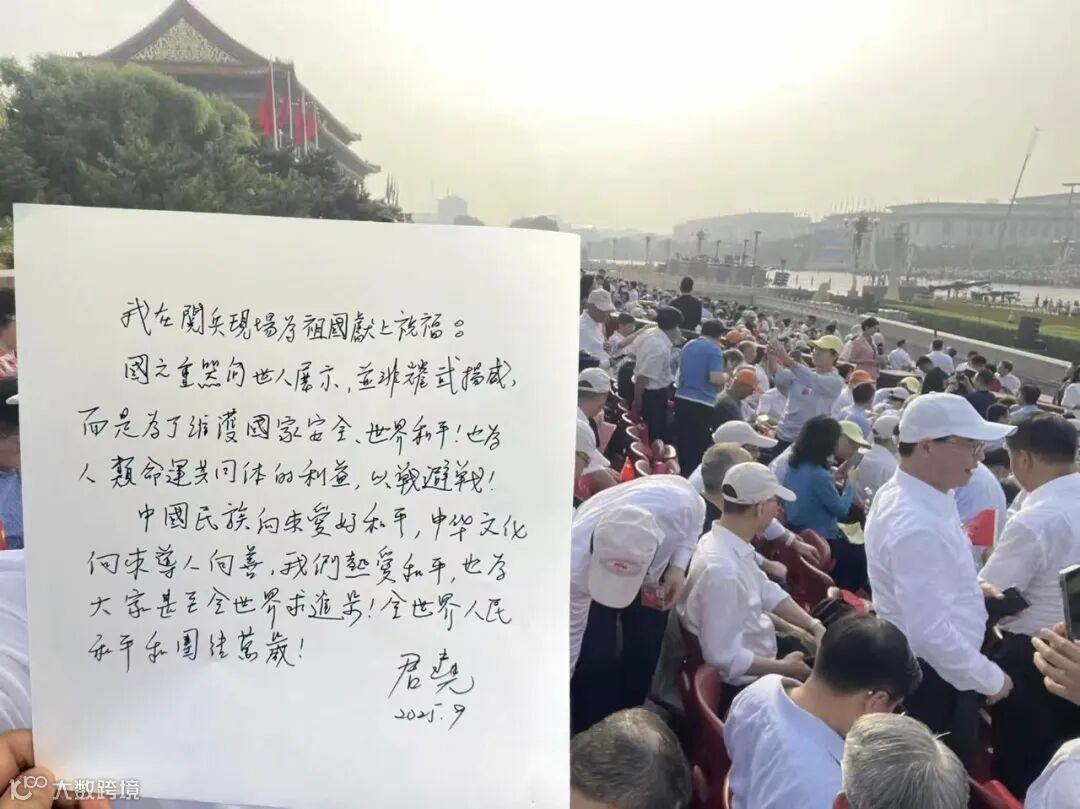 我在閱兵現場为祖國獻上祝福。
國之重器向世人展示，並非耀武揚威，
而是为了維護國家安全、世界和平！也为
人類命運共同体的利益，以戰避戰！
中國民族向來愛好和平，中华文化
向來導人向善，我們熱愛和平，也为
大家甚至全世界求進步！全世界人民
和平和團结萬歲！
君堯
2025.9
100 大数跨境